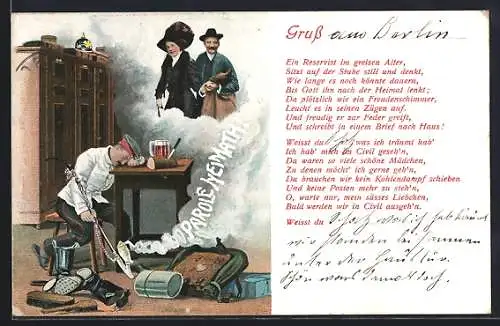 Gruß aus Berlin
PAROLE HEIMATH
Ein Reservist im greisen Alter,
Sitzt auf der Stube still und denkt,
Wie lange es noch könnte dauern,
Bis Gott ihn nach der Heimat lenkt;
Da plötzlich wie ein Freudenschimmer,
Leucht es in seinen Zügen auf.
Und freudig er zur Feder greift,
Und schreibt in einem Brief nach Haus!
Weisst du was ich träumt hab'
Ich hab' mich im Civil geseh'n,
Da waren so viele schöne Mädchen,
Zu denen möcht' ich gerne geh'n,
Da brauchen wir kein Kohlendampf schieben
Und keine Posten mehr zu steh'n,
O, warte nur, mein süsses Liebchen,
Bald werden wir in Civil ausgeh'n.
Weisst du
wir standen bei
unter der Haustür.
Schön war's